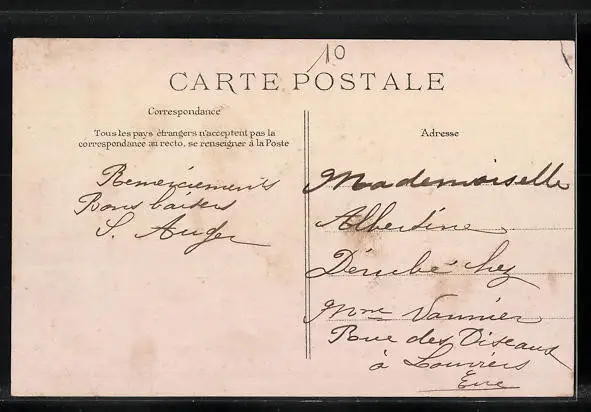 10
CARTE POSTALE
Correspondance
Tous les pays étrangers n'acceptent pas la
correspondance au recto, se renseigner à la Poste
Remerciements
Bons baisers
S. Auger
Adresse
Mademoiselle
Albertine
chez
Mme Vannier
Rue des Oiseaux
à Louviers
Eure